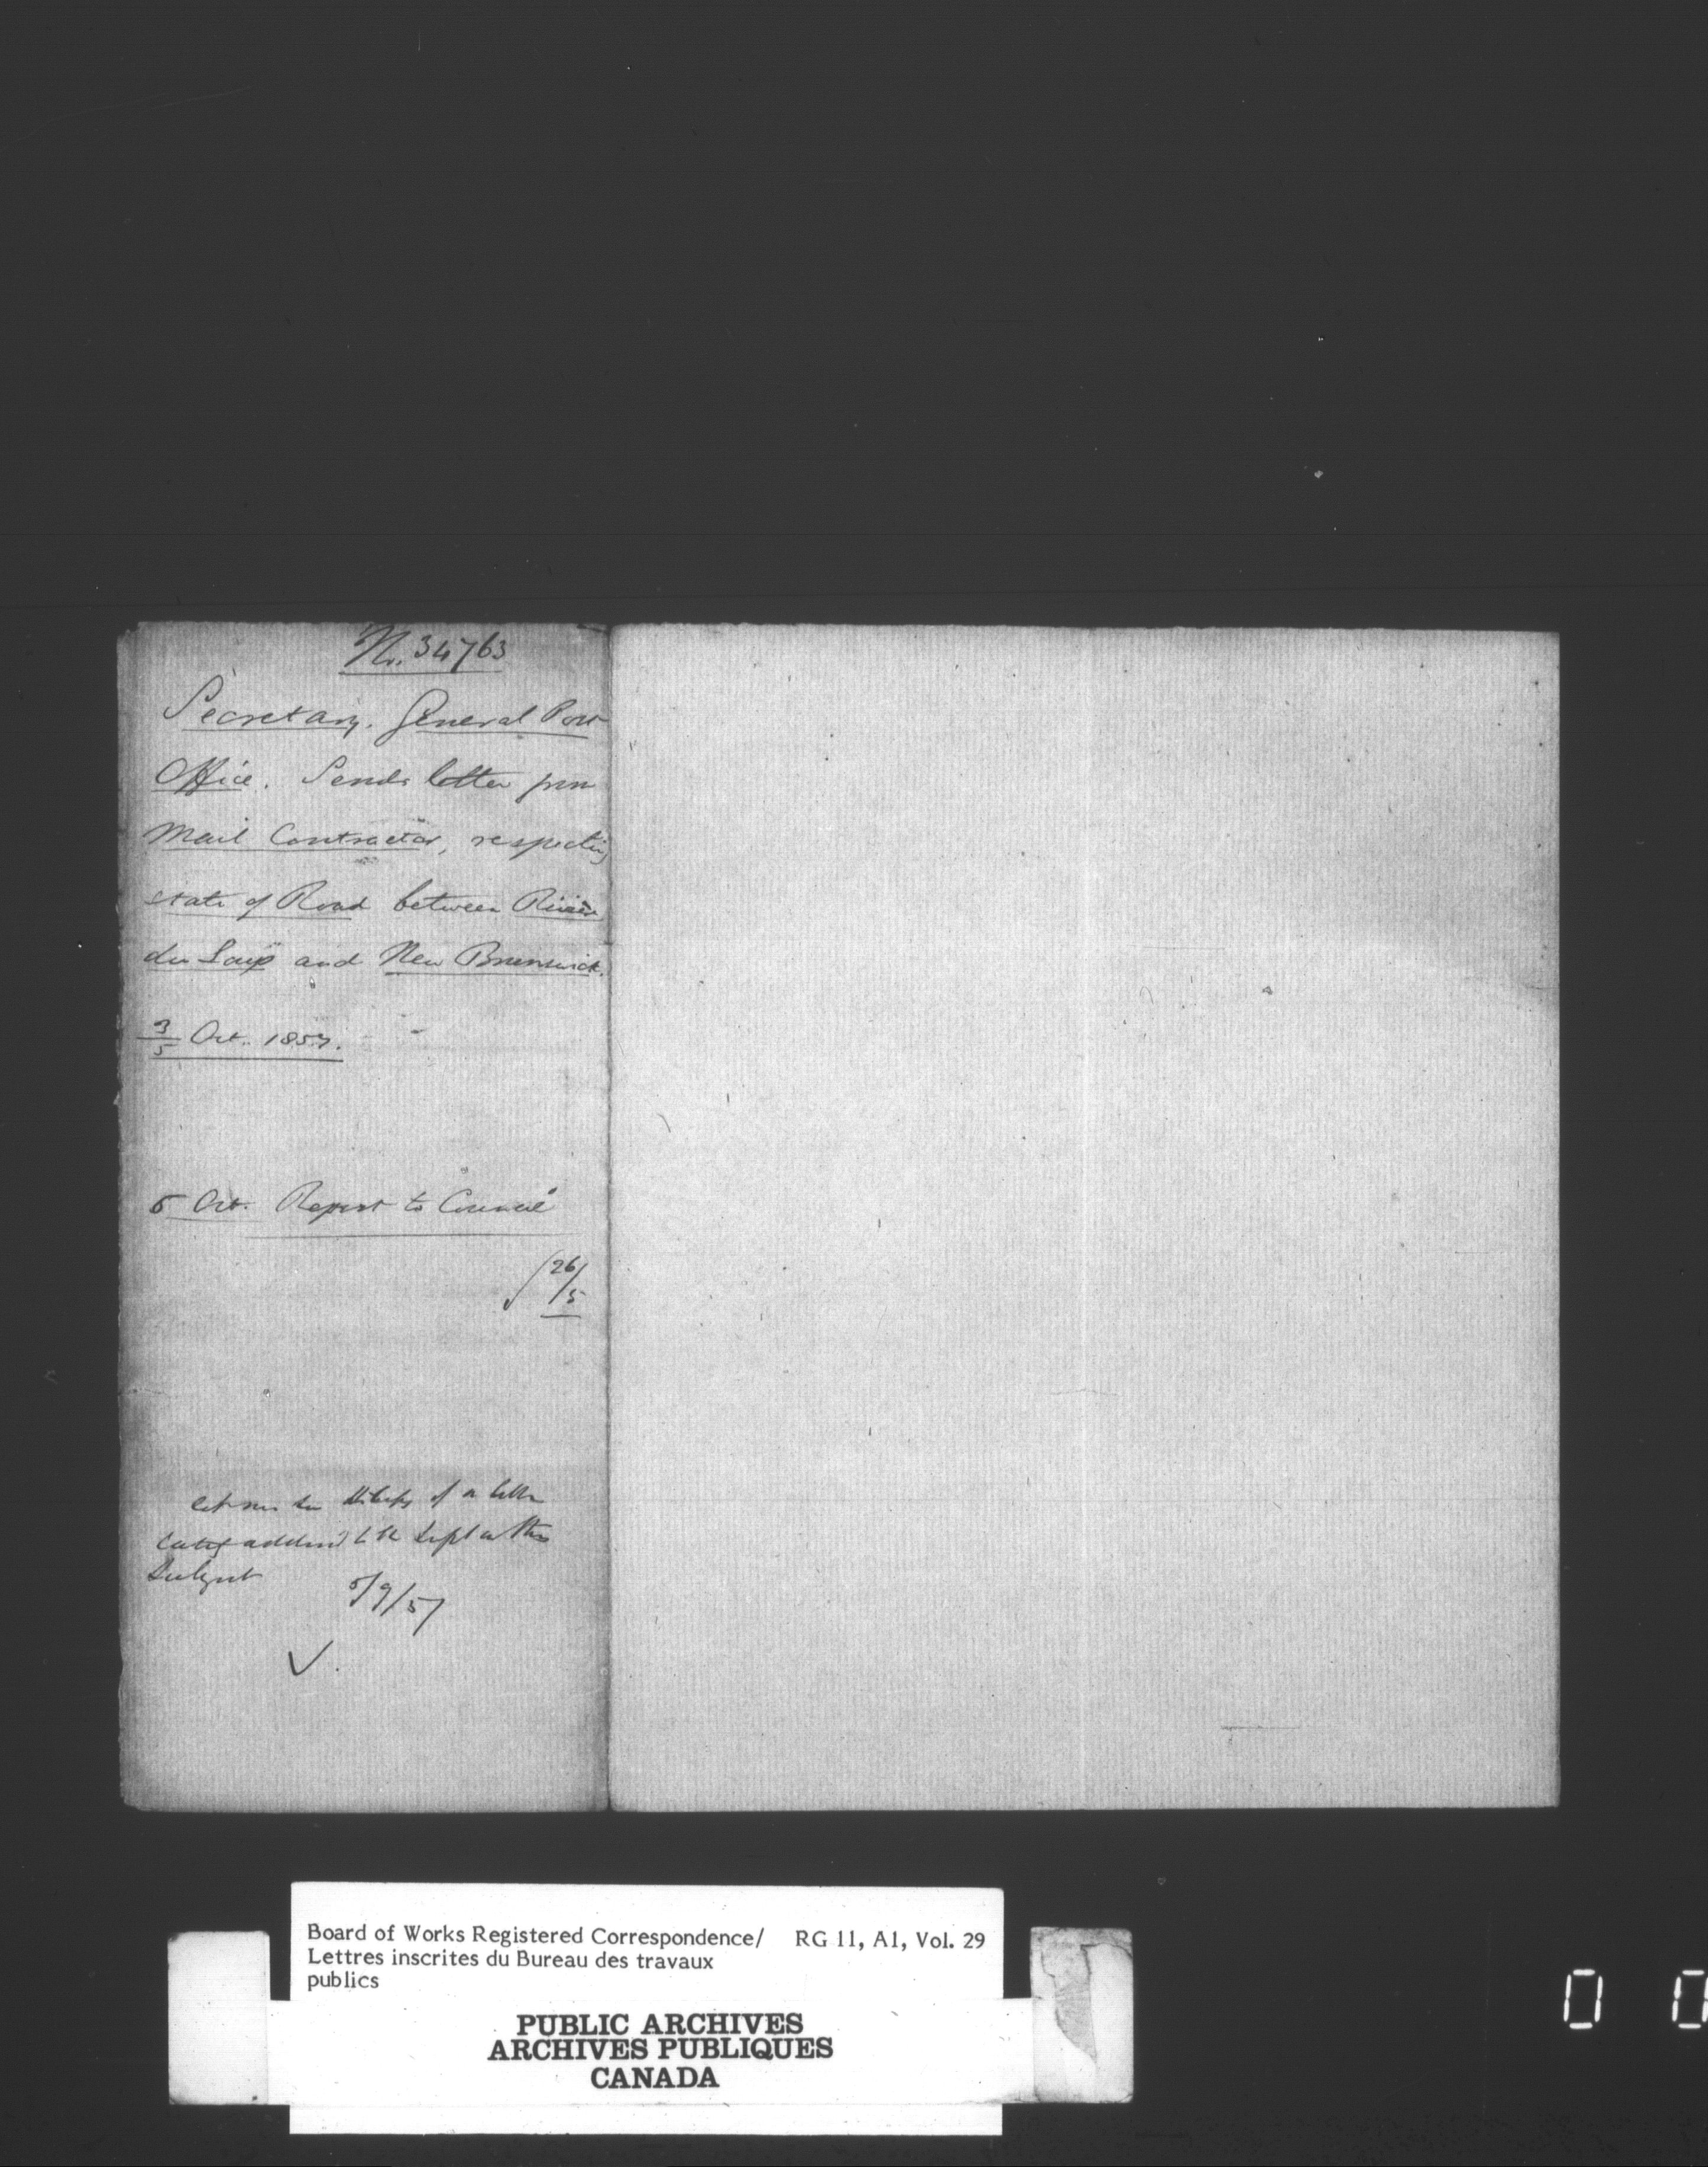 No. 34763
Secretary. General Post
Office. Sends letter from
Mail Contractor, respecting
state of Road between Rivière
du Loup and New Brunswick.
3/5 Oct. 1857.
5 Oct. Report to Council
26/5
let me see of a letter
to the Dept on this
Subject
5/9/57
Board of Works Registered Correspondence/ RG 11, A1, Vol. 29
Lettres inscrites du Bureau des travaux
publics
PUBLIC ARCHIVES
ARCHIVES PUBLIQUES
CANADA
0 0